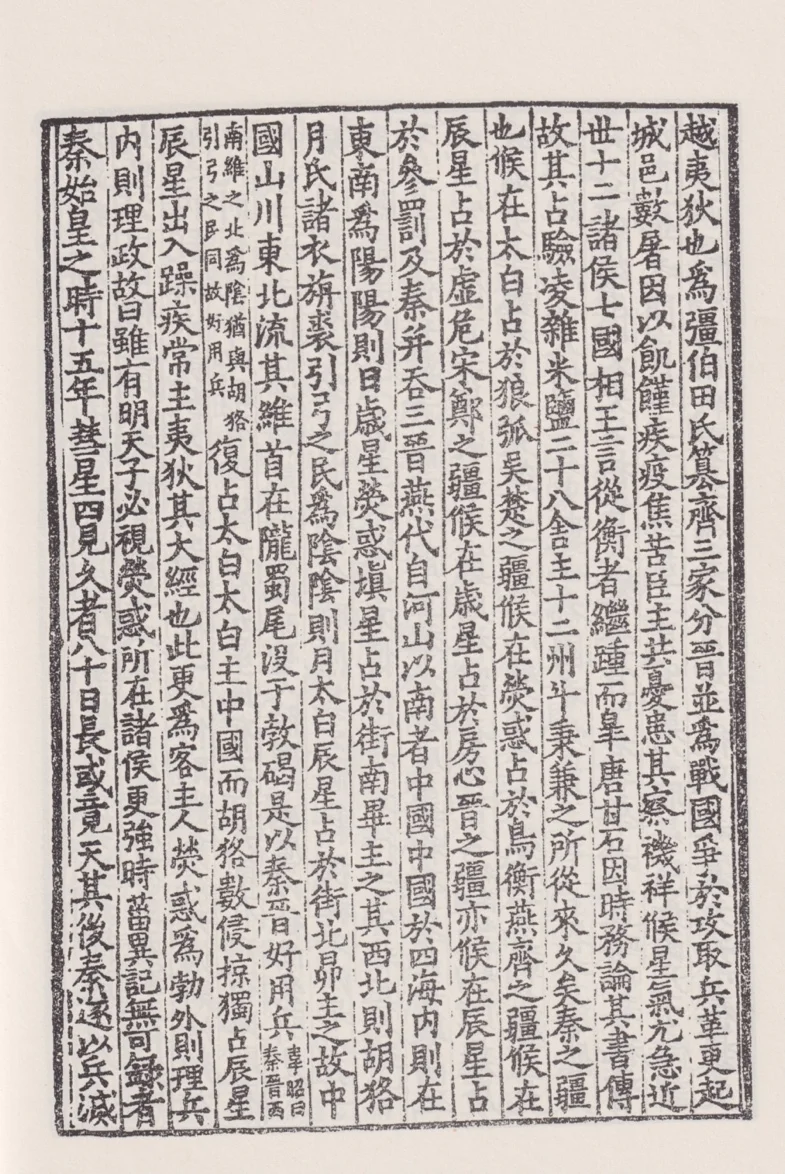 越夷狄也爲彊伯田氏簒齊三家分晉並爲戰國爭於攻取兵革更起
城邑數屠因以飢饉疾疫焦苦臣主共憂患其察禨祥候星氣尤急近
世十二諸侯七國相王言從衡者繼踵而臯唐甘石因時務論其書傳
故其占驗凌雜米鹽二十八舍主十二州斗秉兼之所從來久矣秦之疆
也候在太白占於狼弧吳楚之疆候在熒惑占於鳥衡燕齊之疆候在
辰星占於虛危宋鄭之疆候在歲星占於房心晉之疆亦候在辰星占
於參罰及秦并吞三晉燕代自河山以南者中國中國於四海内則在
東南爲陽陽則日歲星熒惑塡星占於街南畢主之其西北則胡貉
月氏諸衣旃裘引弓之民爲陰陰則月太白辰星占於街北昴主之故中
國山川東北流其維首在隴蜀尾沒于敦碣是以秦晉好用兵韋昭曰秦晉西
南維之北爲陰猶與胡貉引弓之民同故好用兵復占太白太白主中國而胡貉數侵掠獨占辰星
辰星出入躁疾常主夷狄其大經也此更爲客主人熒惑爲勃外則理兵
内則理政故曰雖有明天子必視熒惑所在諸侯更強時菑異記無可錄者
秦始皇之時十五年彗星四見久者八十日長或竟天其後秦遂以兵滅